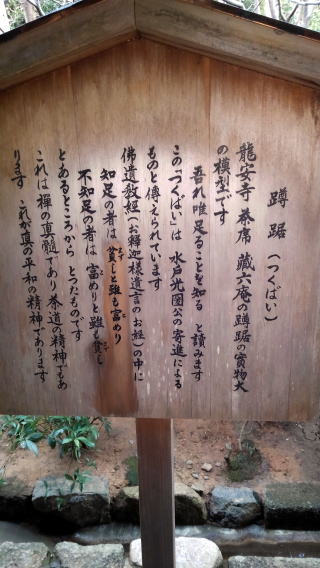 蹲踞（つくばい）
龍安寺茶席藏六庵の蹲踞の實物大
の模型です
吾れ唯足ることを知る　と讀みます
この「つくばい」は　水戸光圀公の寄進による
ものと傳えられています
佛遺教經（お釋迦様遺言のお経）の中に
知足の者は　貧しと雖も富めり
不知足の者は　富めりと雖も貧し
とあるところから　とつたものです
これは禪の真髓であり茶道の精神でもあ
ります　これが真の平和の精神であります